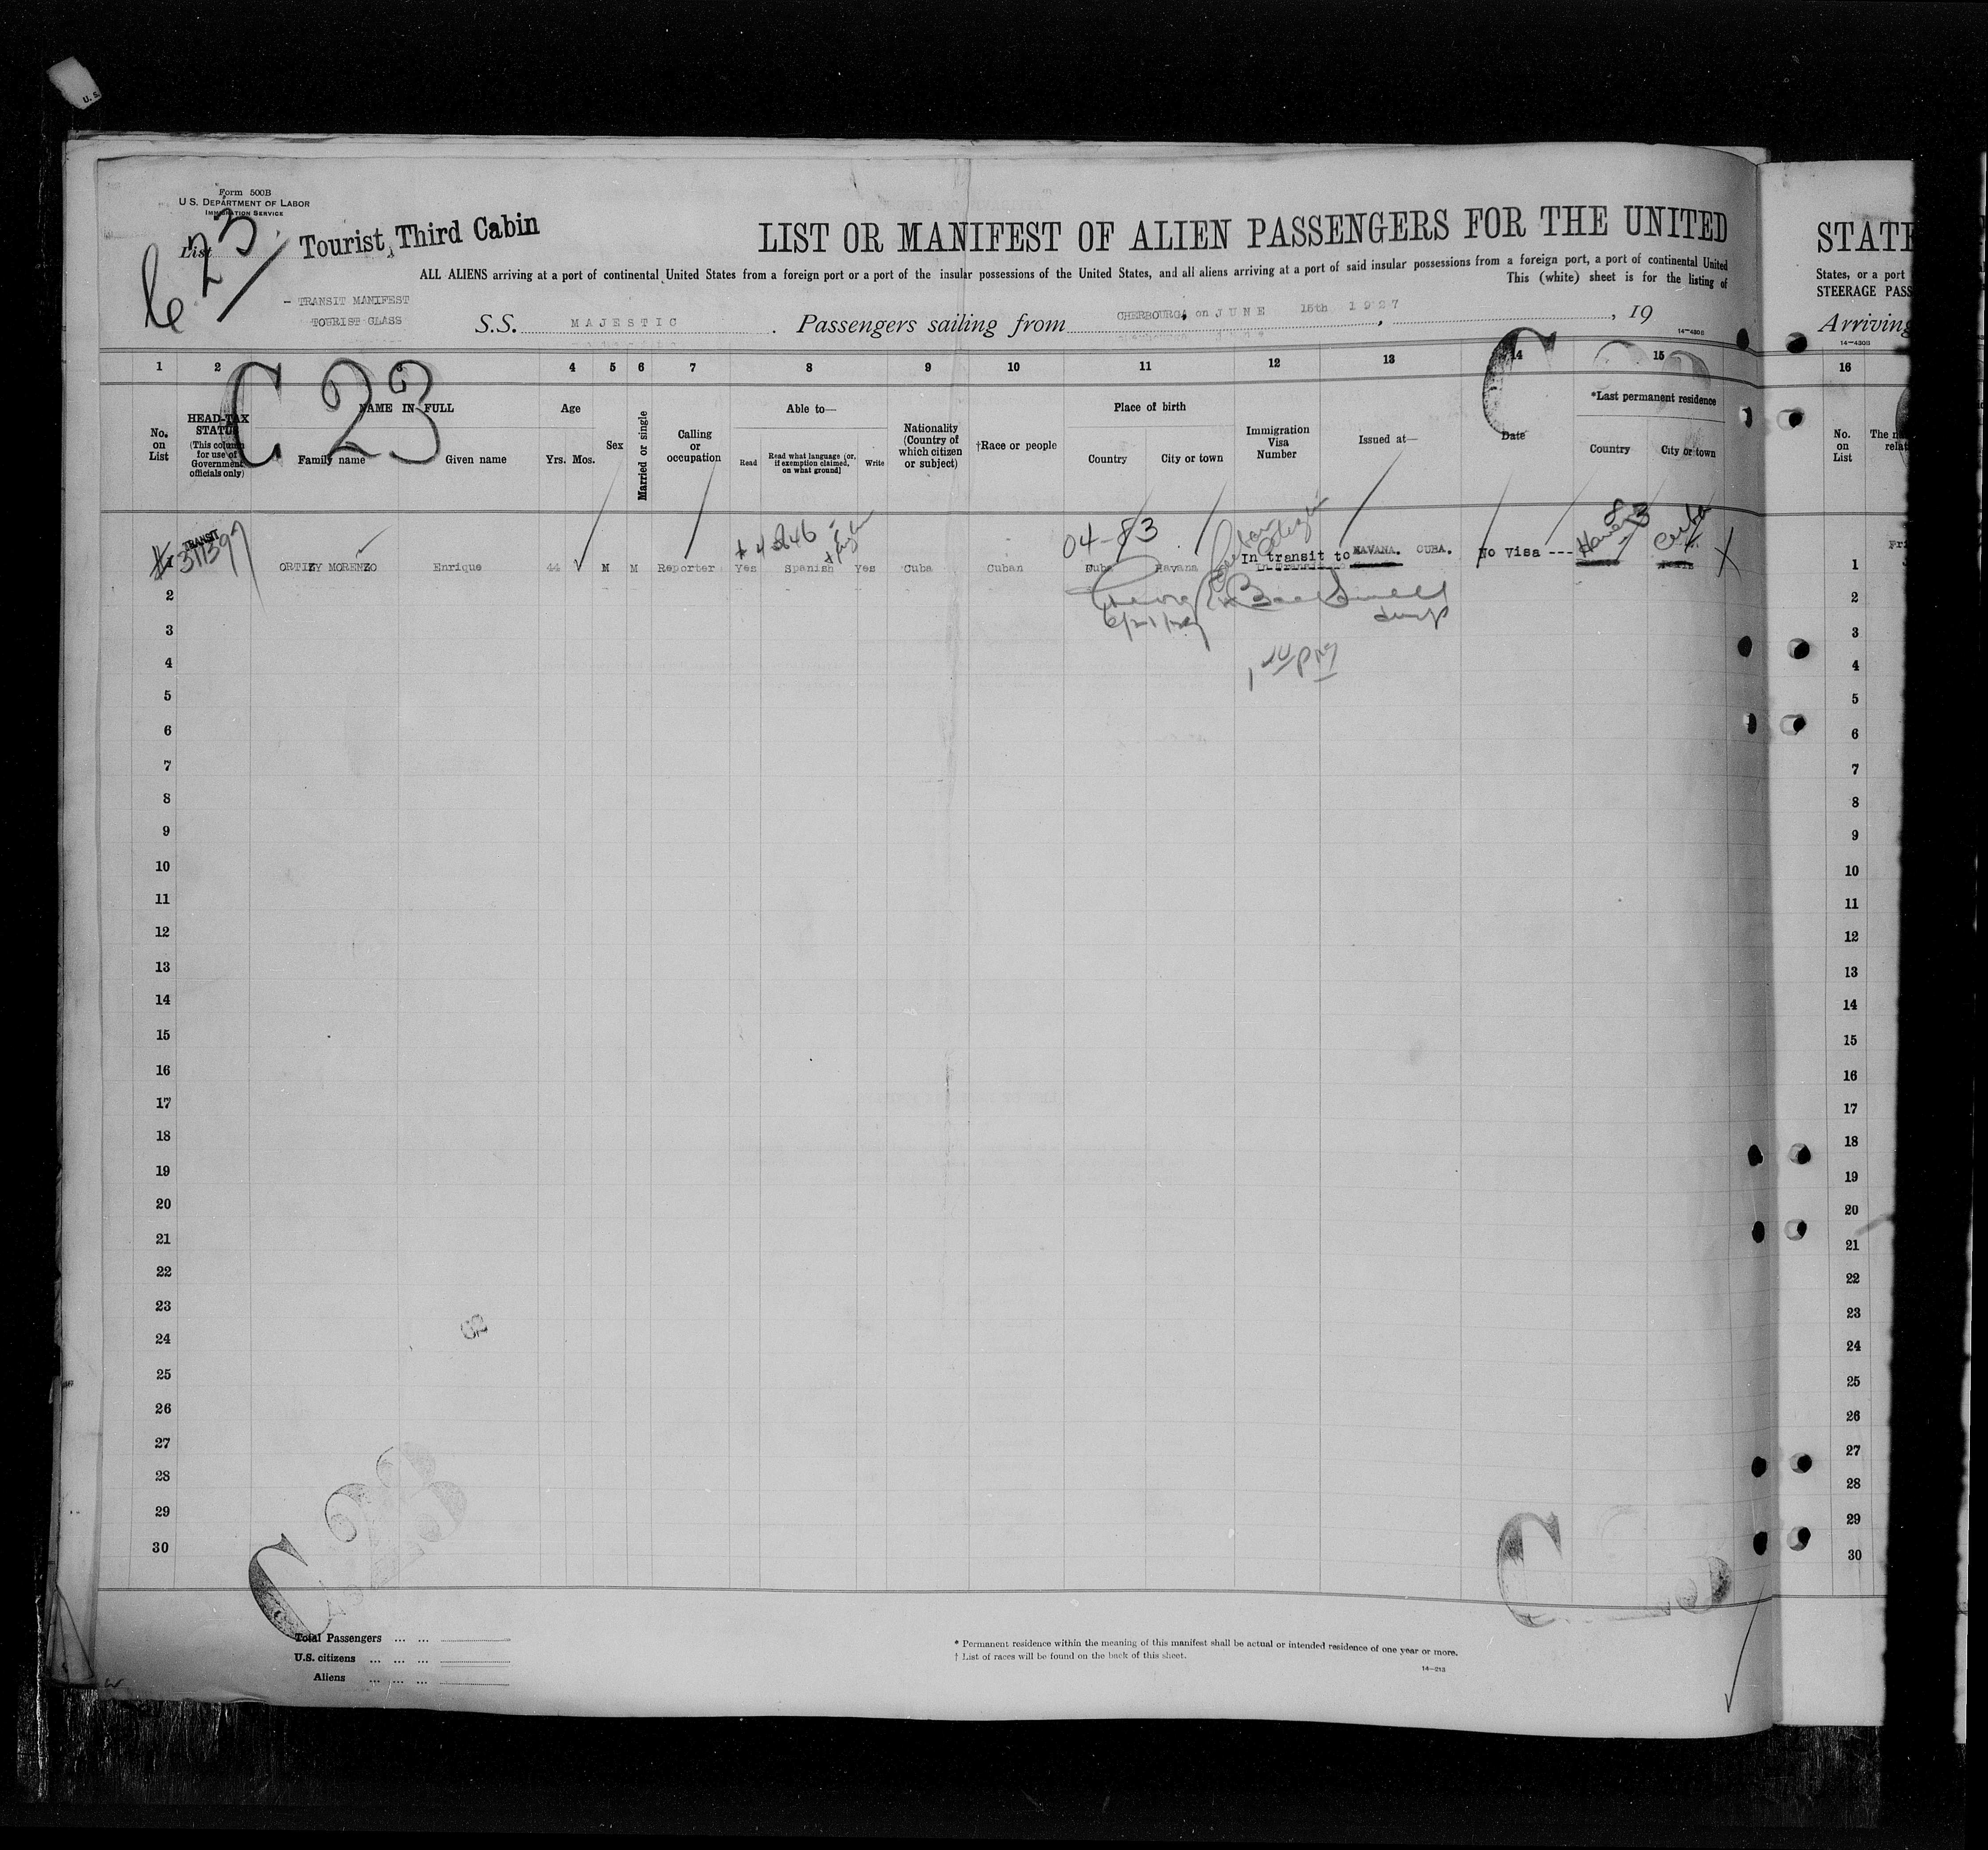 U. S.
Form 500B
U. S. DEPARTMENT OF LABOR
IMMIGRATION SERVICE
List
C 23
Tourist Third Cabin
LIST OR MANIFEST OF ALIEN PASSENGERS FOR THE UNITED
STATE
ALL ALIENS arriving at a port of continental United States from a foreign port or a port of the insular possessions of the United States, and all aliens arriving at a port of said insular possessions from a foreign port, a port of continental United
States, or a port
This (white) sheet is for the listing of
STEERAGE PASS
- TRANSIT MANIFEST
TOURIST CLASS
S.S. MAJESTIC. Passengers sailing from CHERBOURG, on JUNE 15th 1927, 19
Arriving
14-430B
14-430B
1 2 3 4 5 6 7 8 9 10 11 12 13 14 15 16
C 23
C
No. on List
HEAD-TAX STATUS
(This column for use of Government officials only)
NAME IN FULL
Family name
Given name
Age
Yrs. Mos.
Sex
Married or single
Calling or occupation
Able to—
Read
Read what language [or, if exemption claimed, on what ground]
Write
Nationality (Country of which citizen or subject)
†Race or people
Place of birth
Country
City or town
Immigration Visa Number
Issued at—
Date
*Last permanent residence
Country
City or town
No. on List
04-83
TRANSIT
In transit to HAVANA. CUBA. No Visa ---
1 ORTIZY MORENZO Enrique 44 M M Reporter Yes Spanish Yes Cuba Cuban Cuba Havana
1
2
2
3
3
4
4
5
5
6
6
7
7
8
8
9
9
10
10
11
11
12
12
13
13
14
14
15
15
16
16
17
17
18
18
19
19
20
20
21
21
22
22
23
23
24
24
25
25
26
26
27
27
28
28
29
29
30
30
C
C
Total Passengers ... ...
U.S. citizens ... ... ...
Aliens ... ... ...
* Permanent residence within the meaning of this manifest shall be actual or intended residence of one year or more.
† List of races will be found on the back of this sheet.
14-213